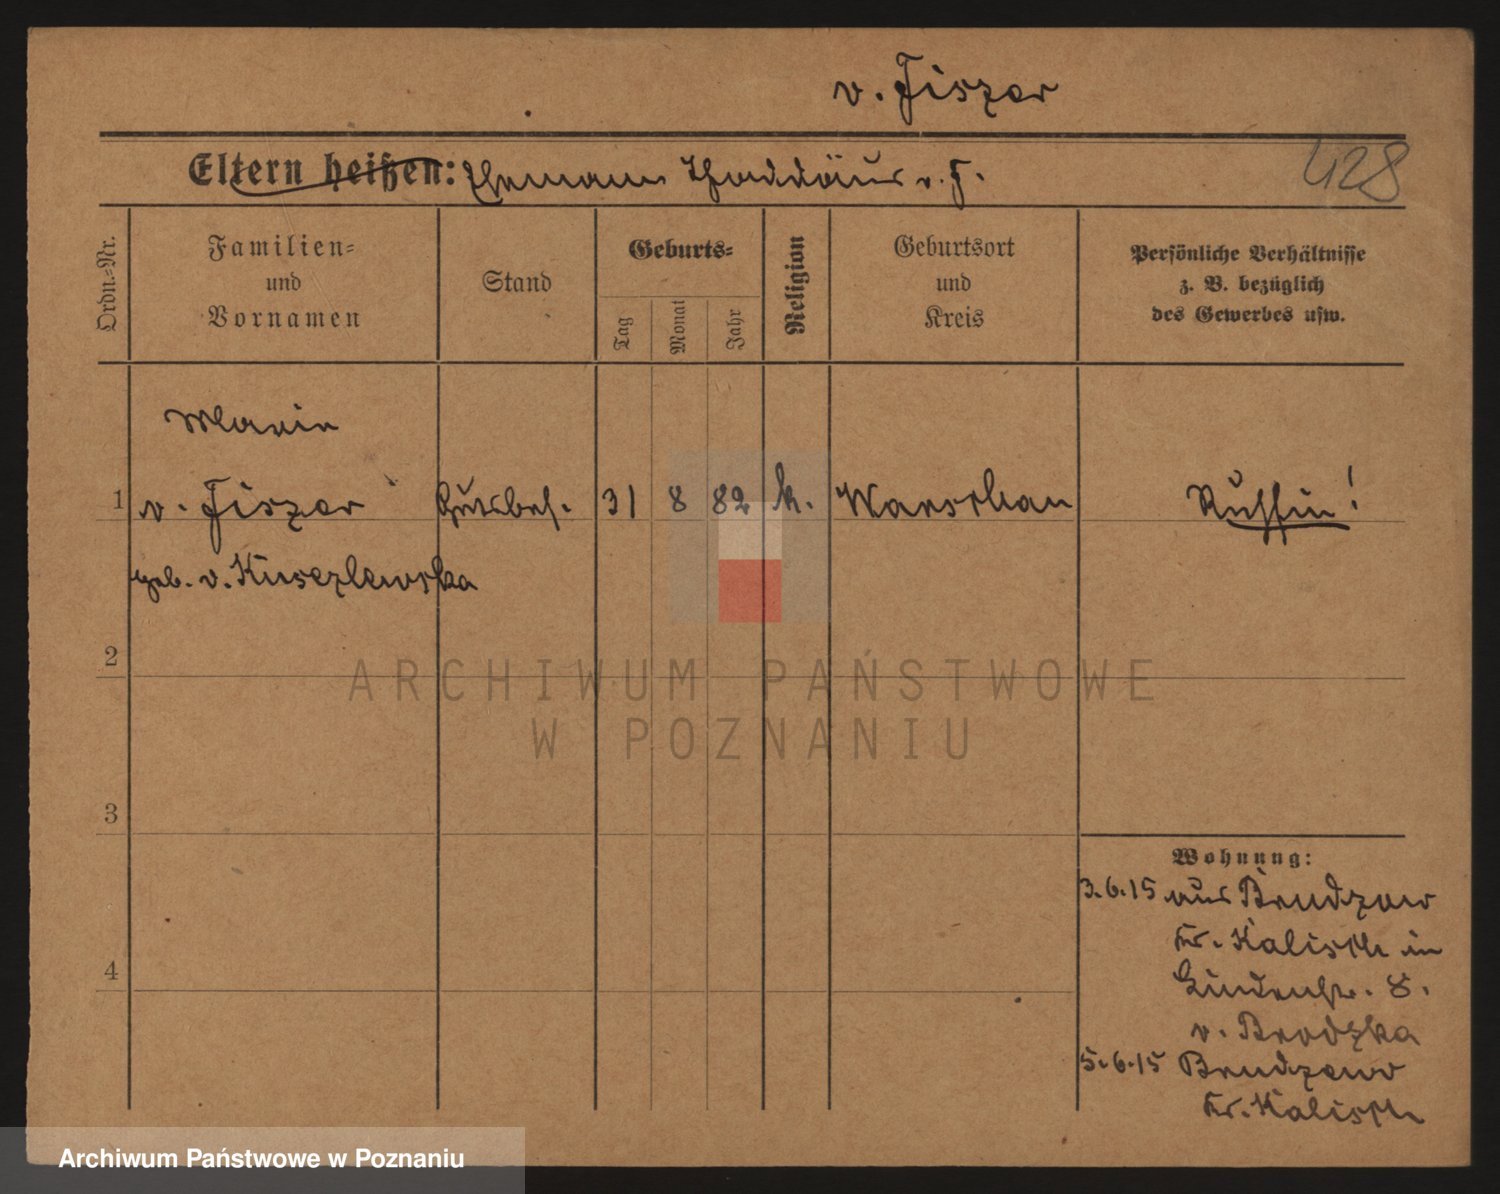 v. Fiszer
Eltern heißen: Ehemann Thaddäus v. F.
428
Ordn.-Nr.
Familien-
und
Vornamen
Stand
Geburts-
Tag
Monat
Jahr
Religion
Geburtsort
und
Kreis
Persönliche Verhältnisse
z. B. bezüglich
des Gewerbes usw.
Maria
1 v. Fiszer Gutsbes. 31 8 82 k. Warschau Russin!
geb. v. Kuszlewska
2
3
4
Wohnung:
3.6.15 aus Brudzew
Kr. Kalisch in
Lindenstr. 8.
v. Brodzka
5.6.15 Brudzew
Kr. Kalisch
ARCHIWUM PAŃSTWOWE
W POZNANIU
Archiwum Państwowe w Poznaniu